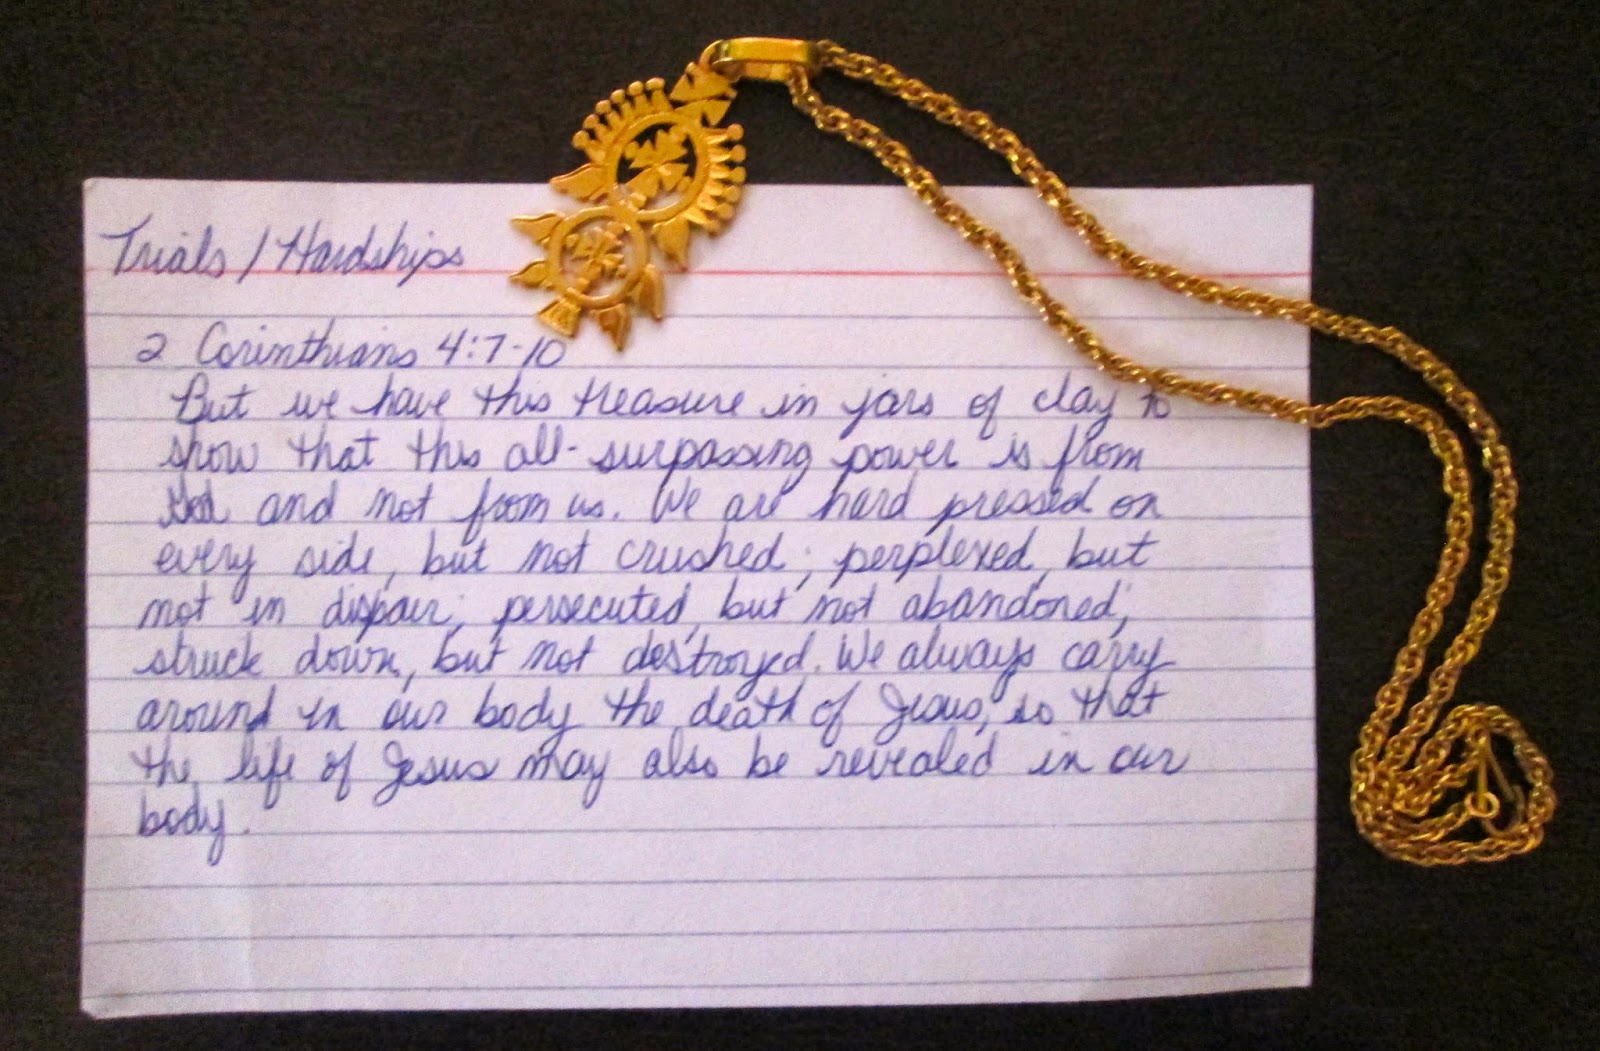 Trials / Hardships
2 Corinthians 4:7-10
But we have this treasure in jars of clay to
show that this all-surpassing power is from
God and not from us. We are hard pressed on
every side, but not crushed; perplexed, but
not in dispair; persecuted, but not abandoned;
struck down, but not destroyed. We always carry
around in our body the death of Jesus, so that
the life of Jesus may also be revealed in our
body.